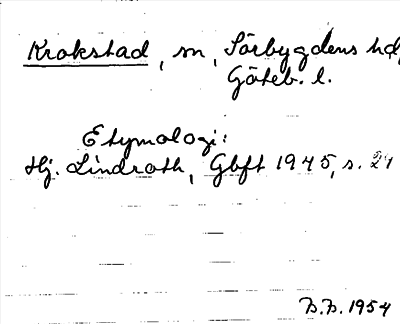 Krokstad, sn, Sörbygdens hd,
Göteb. l.
Etymologi:
Hj. Lindroth, Gbft 1945, s. 24
B.B. 1954